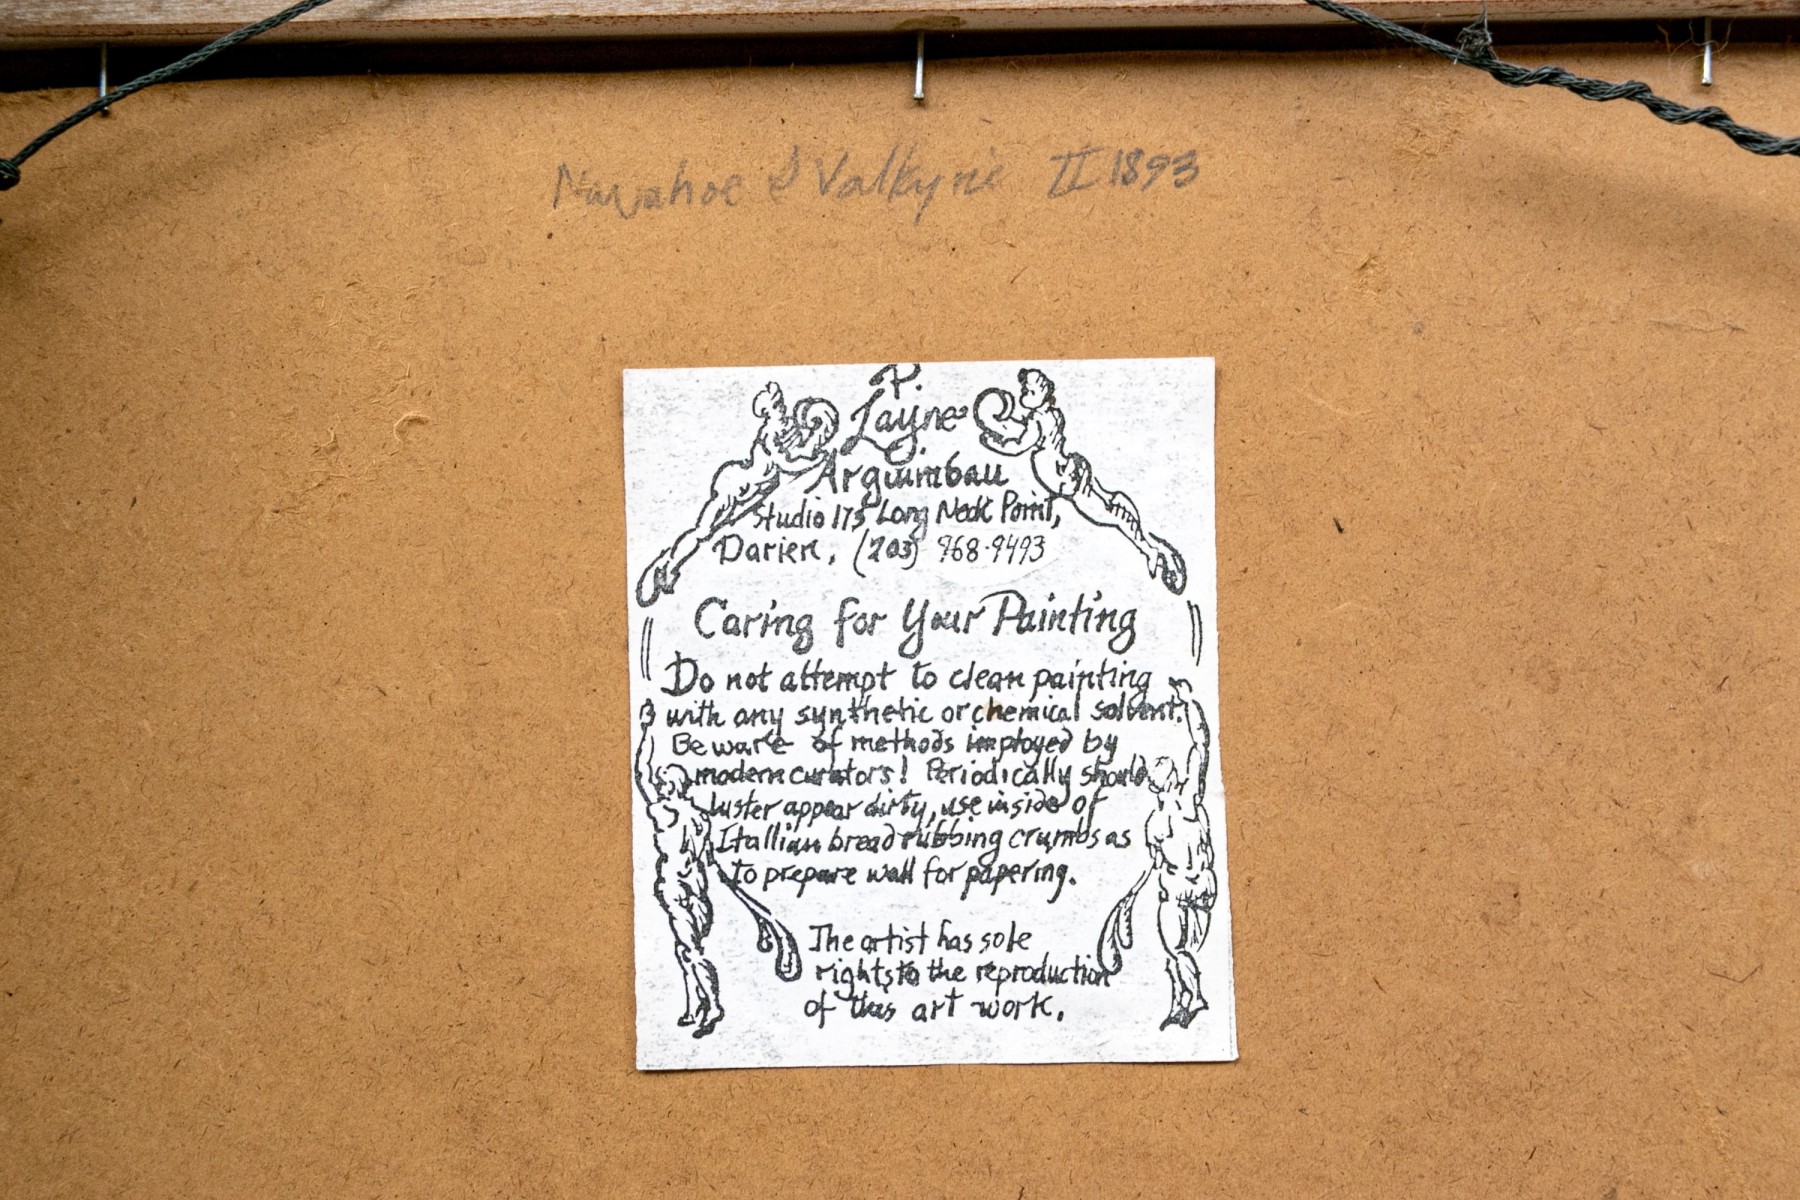 Navahoe & Valkyrie II 1893
P.
Layne
Arguimbau
Studio 173 Long Neck Point,
Darien, (203) 968-9493
Caring for Your Painting
Do not attempt to clean painting
with any synthetic or chemical solvent.
Beware of methods imployed by
modern curators! Periodically should
luster appear dirty, use inside of
Itallian bread rubbing crumbs as
to prepare wall for papering.
The artist has sole
rights to the reproduction
of this art work.